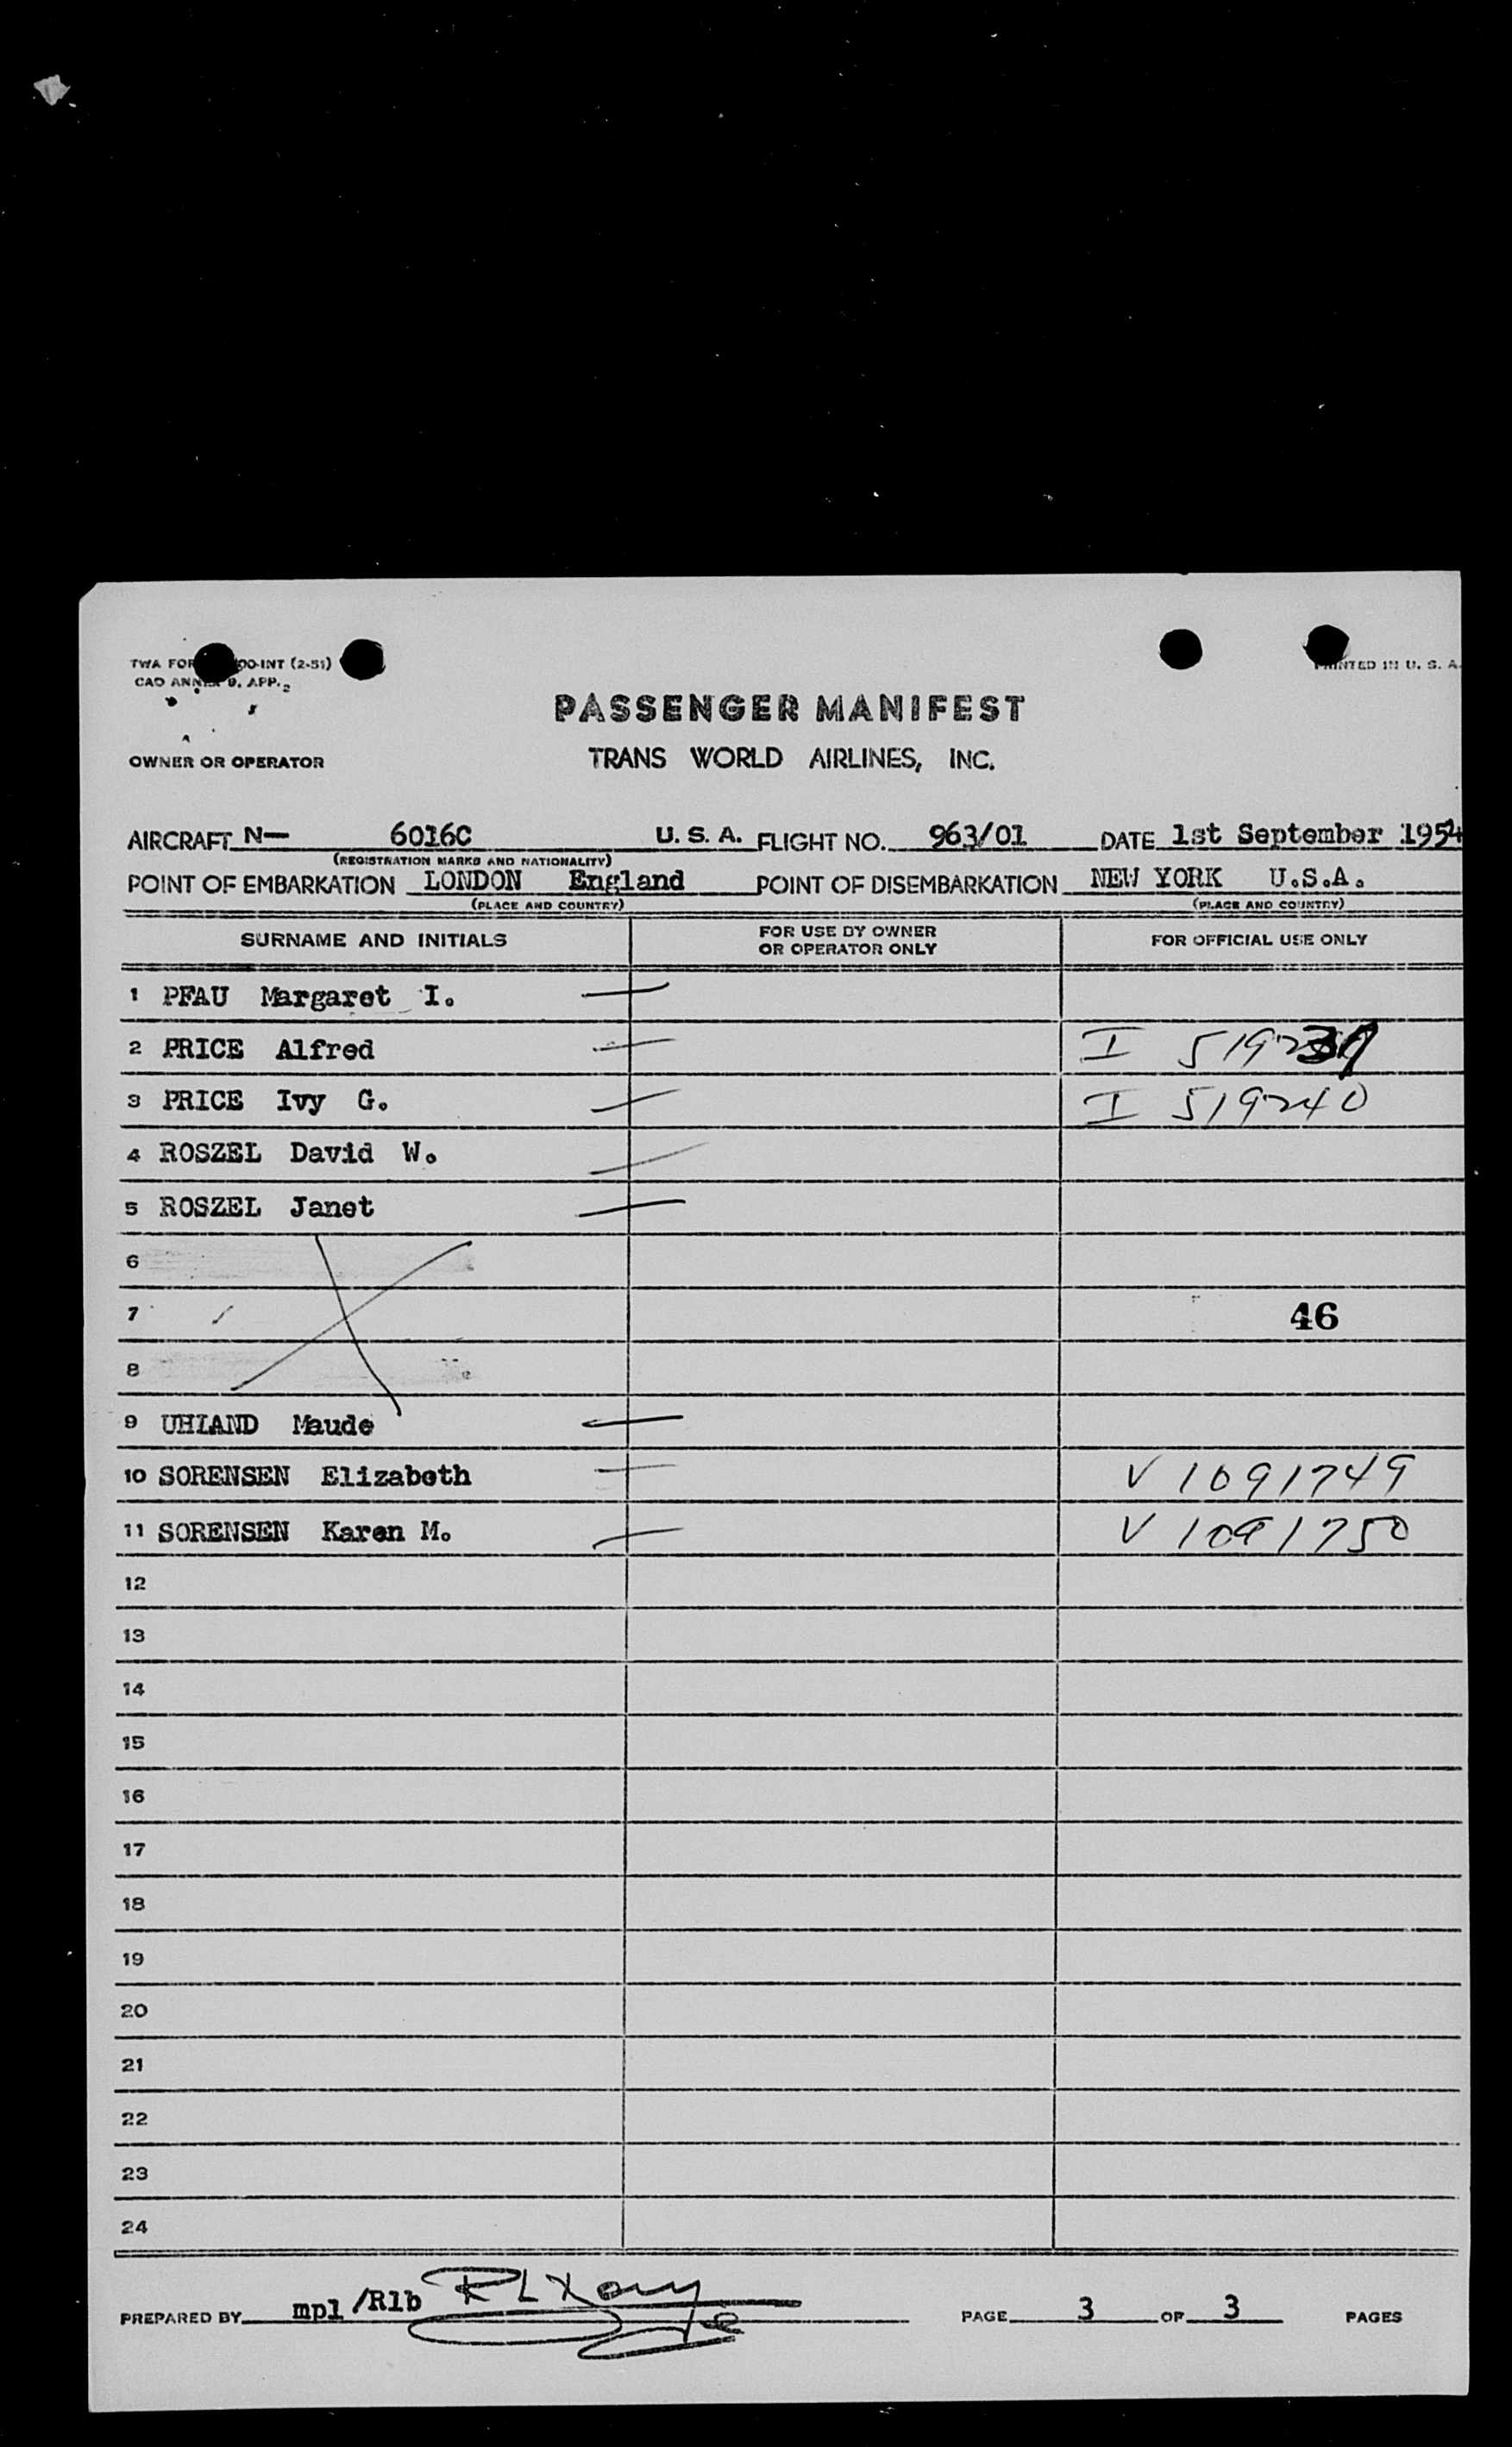 TWA FOR OO-INT (2-51)
CAO ANNEX 9, APP. 2
PRINTED IN U. S. A.
PASSENGER MANIFEST
OWNER OR OPERATOR
TRANS WORLD AIRLINES, INC.
AIRCRAFT N— 6016C U. S. A. FLIGHT NO. 963/01 DATE 1st September 1954
(REGISTRATION MARKS AND NATIONALITY)
POINT OF EMBARKATION LONDON England POINT OF DISEMBARKATION NEW YORK U.S.A.
(PLACE AND COUNTRY) (PLACE AND COUNTRY)
SURNAME AND INITIALS FOR USE BY OWNER OR OPERATOR ONLY FOR OFFICIAL USE ONLY
1 PFAU Margaret I.
2 PRICE Alfred I 519239
3 PRICE Ivy G. I 519240
4 ROSZEL David W.
5 ROSZEL Janet
6
7 46
8
9 UHLAND Maude
10 SORENSEN Elizabeth V 1091749
11 SORENSEN Karen M. V 1091750
12
13
14
15
16
17
18
19
20
21
22
23
24
PREPARED BY mpl/Rlb PAGE 3 OF 3 PAGES